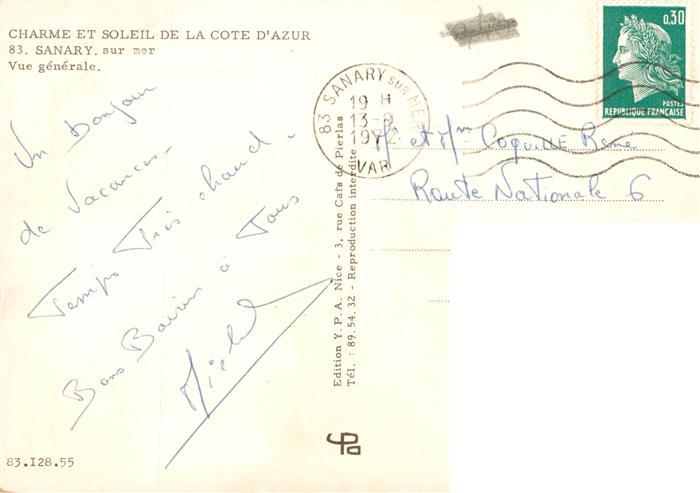 CHARME ET SOLEIL DE LA COTE D'AZUR
83. SANARY. sur mer
Vue générale.
Un bonjour
de Vacances.
Temps Très chaud.
Bons Baisers à Tous
Michel
83.128.55
Edition Y.P.A. Nice - 3, rue Cafs de Pierlas
Tél. : 89.54.32 - Reproduction interdite
YPA
83 SANARY sur MER
19 H
13-8
197
VAR
0,30
POSTES
REPUBLIQUE FRANÇAISE
Mr et Mm Coquille René
Route Nationale 6